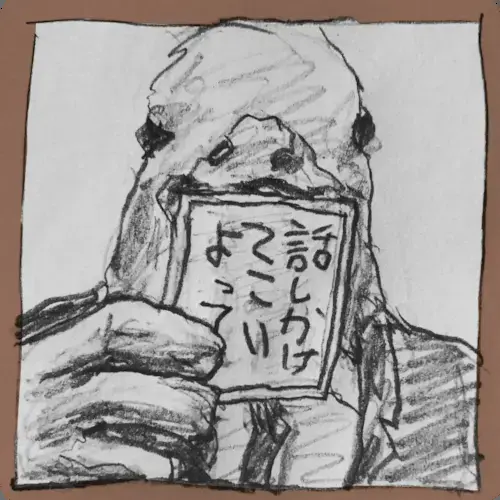 話しかけ
てこい
よって